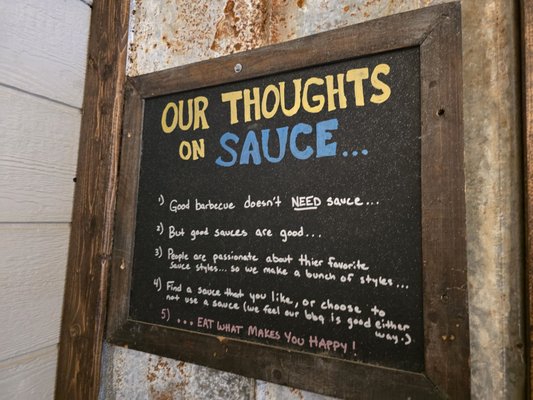 OUR THOUGHTS
ON SAUCE...
1) Good barbecue doesn't NEED sauce...
2) But good sauces are good...
3) People are passionate about thier favorite
sauce styles... so we make a bunch of styles...
4) Find a sauce that you like, or choose to
not use a sauce (we feel our bbq is good either
way.)
5) ... EAT WHAT MAKES YOU HAPPY!